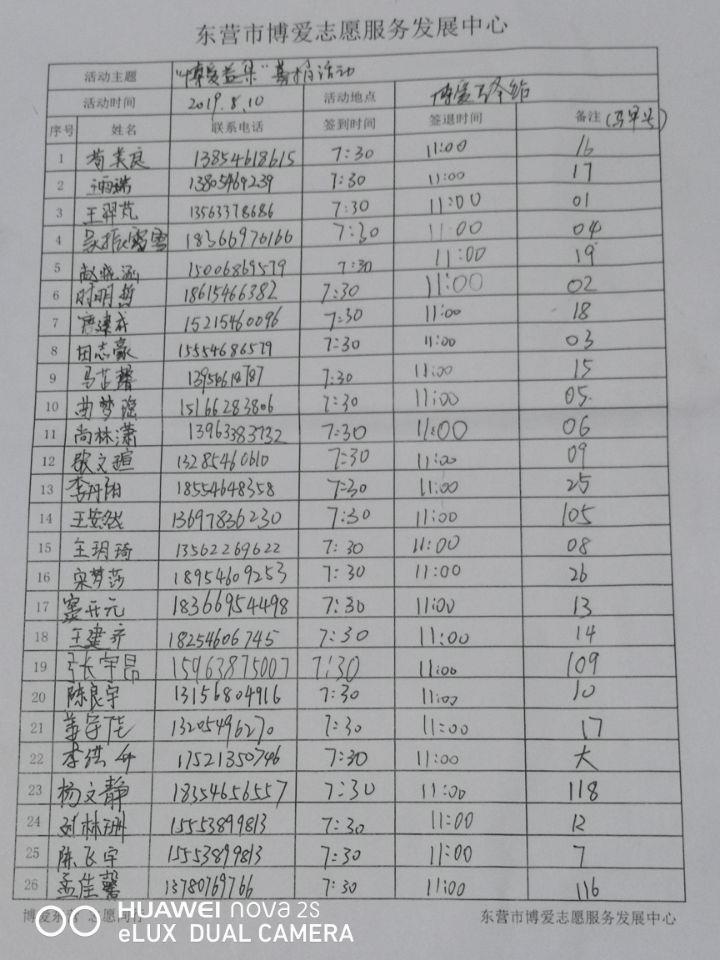 东营市博爱志愿服务发展中心
活动主题 "博爱益集"募捐活动
活动时间 2019.8.10 活动地点 博爱
序号 姓名 联系电话 签到时间 签退时间 备注(马甲号)
1 13854618615 7:30 11:00 16
2 13805469239 7:30 11:00 17
3 王羿芃 13563378686 7:30 11:00 01
4 18366976166 7:30 11:00 04
5 赵晓涵 15006869579 7:30 11:00 19
6 时明哲 18615466382 7:30 11:00 02
7 唐建成 15215460096 7:30 11:00 18
8 田志豪 15554686579 7:30 11:00 03
9 马芷馨 7:30 11:00 15
10 曲梦瑶 15166283806 7:30 11:00 05
11 尚林潇 13963383732 7:30 11:00 06
12 张文暄 13285460610 7:30 11:00 09
13 李丹阳 18554648358 7:30 11:00 25
14 王安然 13697836230 7:30 11:00 105
15 王玥琦 13562269622 7:30 11:00 08
16 宋梦莎 18954609253 7:30 11:00 26
17 窦开元 18366954498 7:30 11:00 13
18 王建齐 18254606745 7:30 11:00 14
19 张宇昂 15963875007 7:30 11:00 109
20 陈良宇 13156804916 7:30 11:00 10
21 姜守佳 13205496270 7:30 11:00 17
22 17521350746 7:30 11:00 大
23 杨文静 18354656557 7:30 11:00 118
24 刘林珊 15553899813 7:30 11:00 12
25 陈飞宇 15553899813 7:30 11:00 7
26 孟佳馨 13780769766 7:30 11:00 116
博爱东营 志愿同行 东营市博爱志愿服务发展中心
HUAWEI nova 2s
eLUX DUAL CAMERA